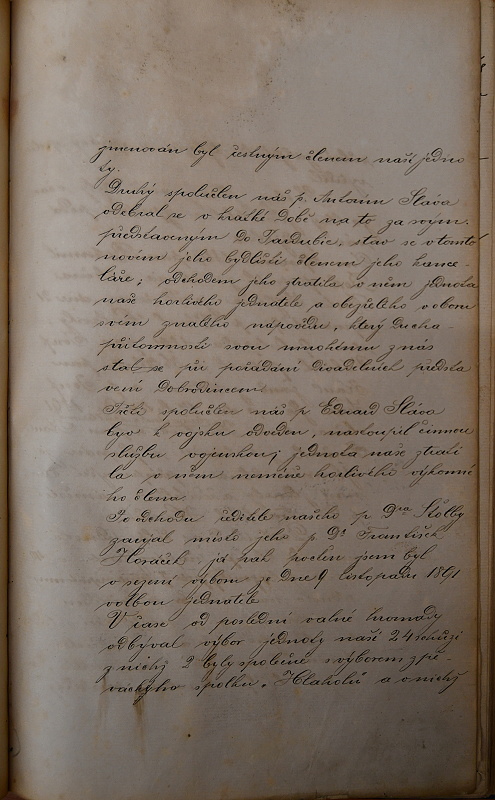 jmenován byl čestným členem naší jedno
ty.
Druhý spolučlen náš p. Antonín Sláva
odebral se v krátké době na to za svým
představeným do Pardubic, stav se v tomto
novém jeho bydlišti členem jeho kance-
láře; odchodem jeho ztratila v něm jednota
naše horlivého jednatele a obezřelého v oboru
svém znalého nápovědu, který ducha-
přítomností svou mnohému z nás
stal se při pořádání divadelních předsta
vení dobrodincem.
Třetí spolučlen náš p Eduard Sláva
byv k vojsku odveden, nastoupil činnou
službu vojenskou; jednota naše ztrati
la v něm neméně horlivého výkonné
ho člena.
Po odchodu ředitele našeho p Dra Štolby
zaujal místo jeho p Dr František
Horáček já pak poctěn jsem byl
v sezení výboru ze dne 9 listopadu 1891
volbou jednatele
V čase od poslední valné hromady
odbýval výbor jednoty naší 24 schůzí
z nichž 2 byly společné s výborem zpě-
váckého spolku „Hlaholu a v nichž